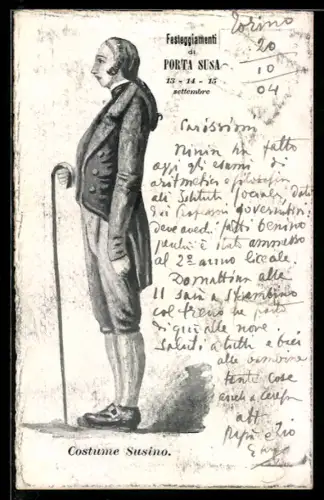 Festeggiamenti
di
PORTA SUSA
13 - 14 - 15
settembre
Torino
20
10
04
Carissimi
Ninin ha fatto
oggi gli esami di
aritmetica e filosofia
all' Istituto Sociale, dati
dai Professori governativi.
Deve averli fatti benino
perchè è stato ammesso
al 2º anno liceale.
Domattina alle
11 sarà a Strambino
col treno che parte
di qui alle nove.
Saluti a tutti e baci
alle bambine
tante cose
anche a
aff
Papà e Zio
Costume Susino.